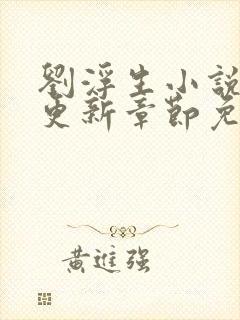 劉浮生小說
更新章節免
黃進强